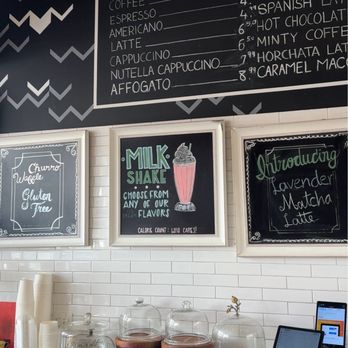 COFFEE
ESPRESSO
AMERICANO
LATTE
CAPPUCCINO
NUTELLA CAPPUCCINO
AFFOGATO
SPANISH L
HOT CHOCOLAT
MINTY COFFE
HORCHATA LAT
CARAMEL MAC
Churro
Waffle
Gluten
Free
MILK
SHAKE
CHOOSE FROM
ANY OF OUR
FLAVORS
CALORIE COUNT: WHO CARES!!
Introducing
Lavender
Matcha
Latte